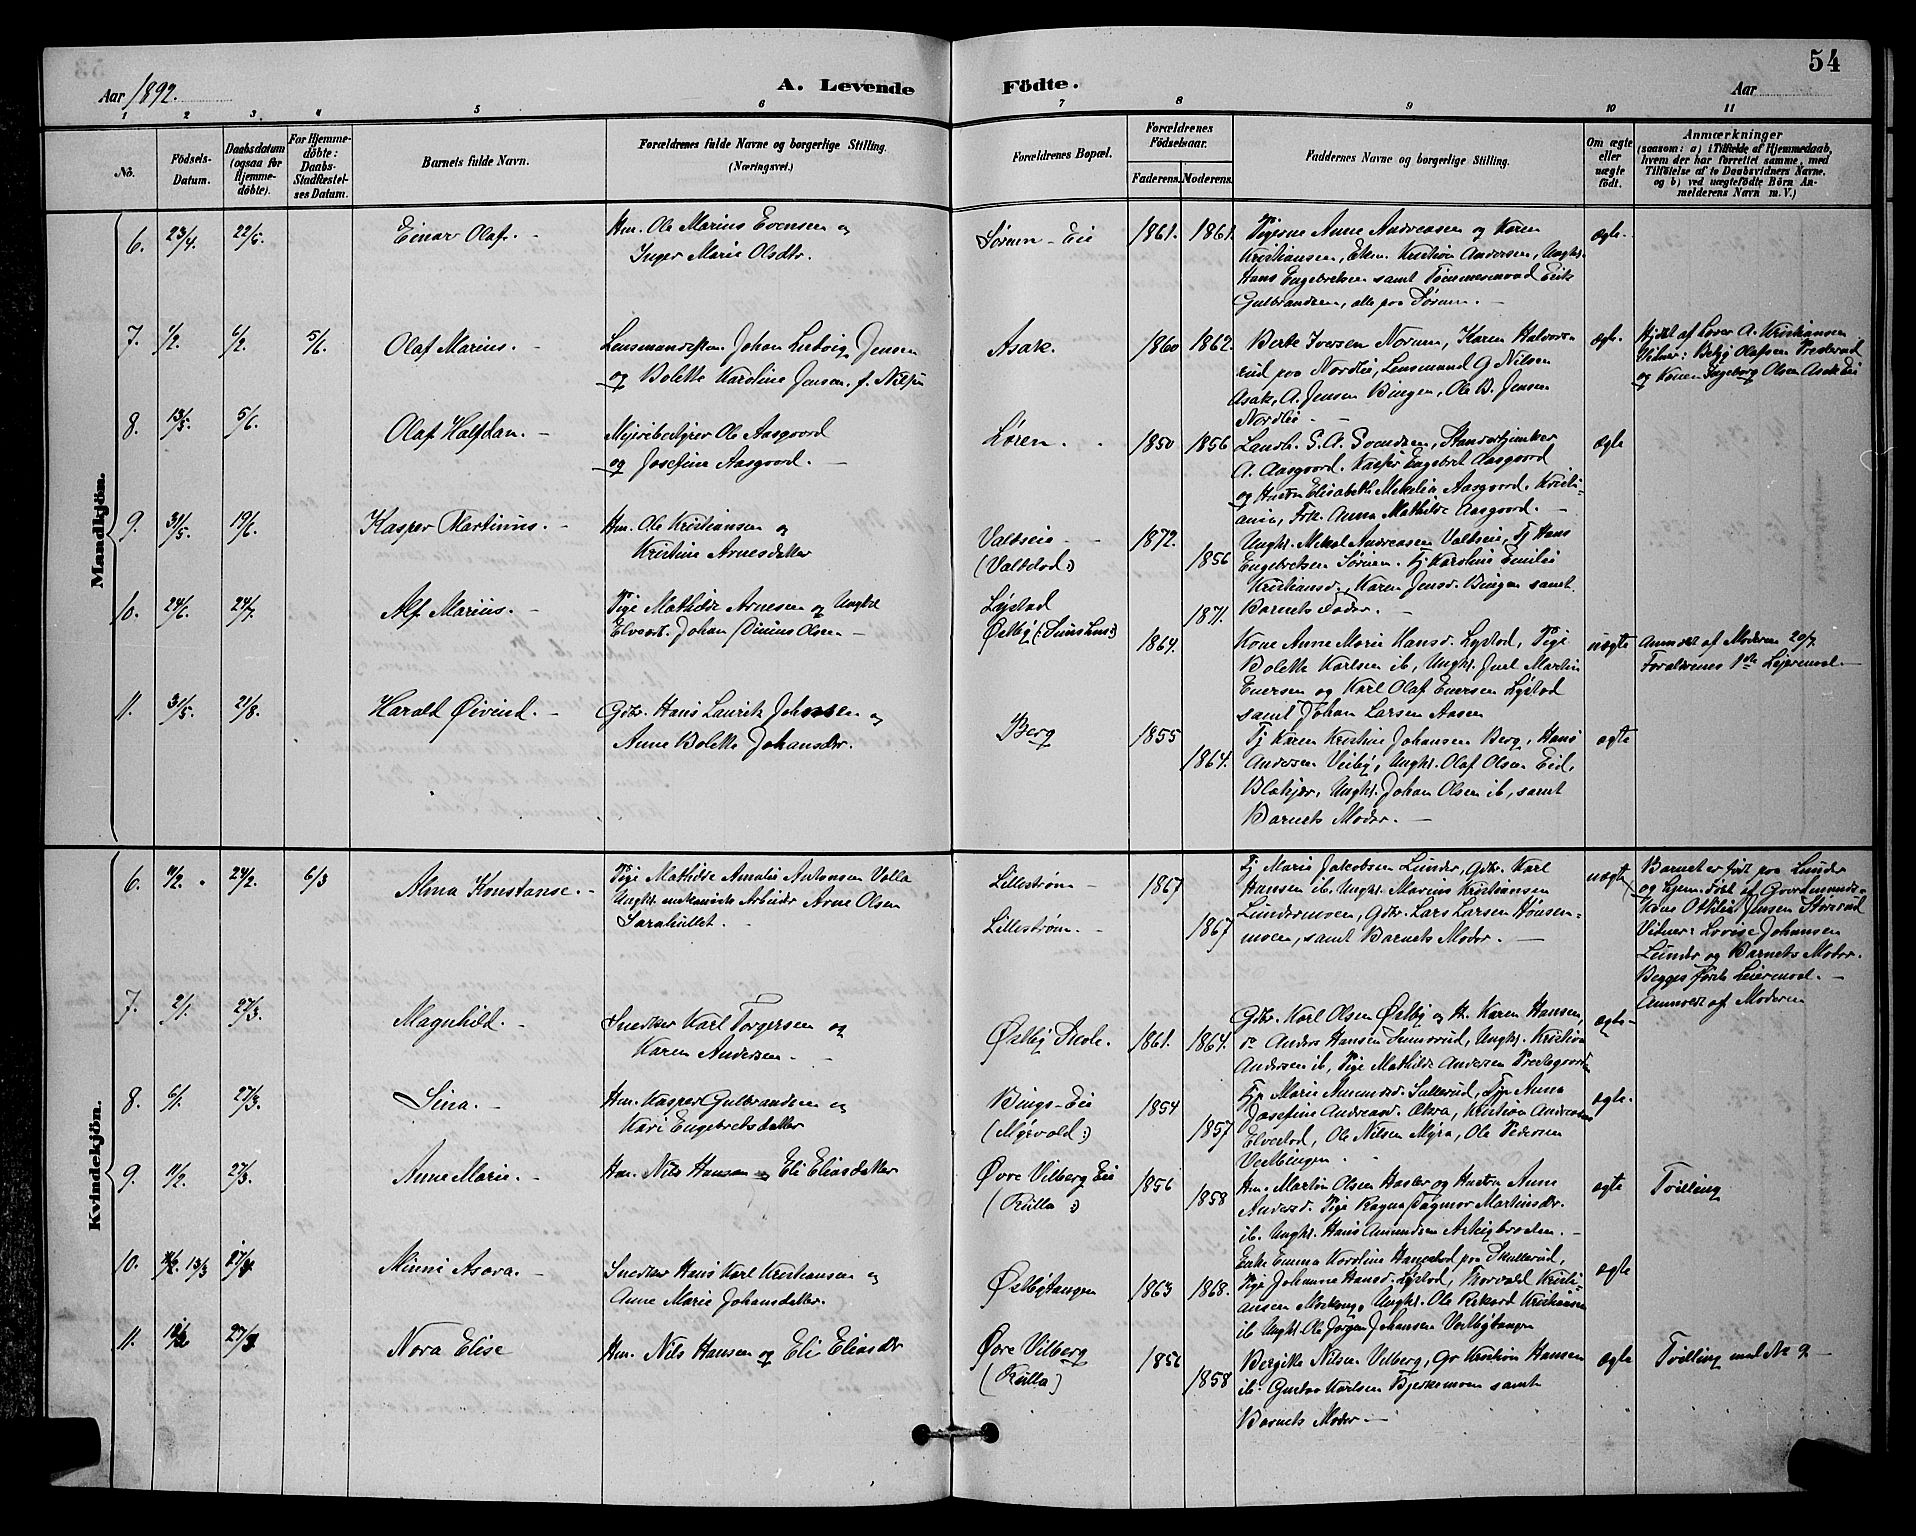 54
Aar 1892.
A. Levende
Födte.
Aar
1 2 3. 4 5 6 7 8 9 10 11
No.
Födsels-
Datum.
Daabsdatum
(ogsaa for
Hjemme-
döbte).
For Hjemme-
döbte:
Daabs-
Stadfæstel-
ses Datum.
Barnets fulde Navn.
Forældrenes fulde Navne og borgerlige Stilling.
(Næringsvei.)
Forældrenes Bopæl.
Forældrenes
Födselsaar.
Faderens. Moderens.
Faddernes Navne og borgerlige Stilling.
Om ægte
eller
uægte
födt.
Anmærkninger
(saasom: a) i Tilfælde af Hjemmedaab,
hvem der har forrettet samme, med
Tilföielse af to Daabsvidners Navne,
og b) ved uægtefödte Börn An-
melderens Navn m. V.)
Mandkjön.
6. 23/4. 22/5. Einar Olaf. - Hm. Ole Marius Evensen og
Inger Marie Olsdtr.
Sørum - Eie 1861. 1861.
Pigerne Anne Andreasen og Karen
Kristiansen, Ekm. Kristian Andersen, Ungk.
Hans Engebretsen samt Tømmermand Erik
Gulbrandsen, alle paa Sørum. -
ægte.
7. 1/2. 6/2. 5/6. Olaf Marius. - Lensmandsfm. Johan Ludvig Jensen
og Bolette Karoline Jensen f. Nilsen
Asak. 1860 1862.
Berte Iversen Norum, Karen Halvors-
rud paa Nordli, Lensmand G Nilsen
Asak, A. Jensen Bingen, Ole B. Jensen
Nordlie -
ægte.
Hjdbt af Lærer A. Kristiansen
Vidner: Betzy Olafsen Presterud
og Konen Ingeborg Olsen Asak Eie
8. 13/5. 5/6. Olaf Halfdan. - Meieribestyrer Ole Aasgaard
og Josefine Aasgaard. -
Løren. 1850 1856
Landh. S. A. Svendsen, Standertjunker
A. Aasgaard. Kasser Engebret Aasgaard
og Hustru Elisabeth Mekeline Aasgaard, Kristi-
ania, Frk. Anna Mathilde Aasgaard. -
ægte
9. 31/5. 19/6. Kasper Martinus. - Hm. Ole Kristiansen og
Kristine Arnesdatter
Valdseie -
(Valstad:)
1872.
1856
Ungk. Mekal Andreasen Valdseie, Tj Hans
Engebretsen Sørum. Tj Karoline Emilie
Kristiansd., Karen Jensd. Bingen samt
Barnets Fader. -
10. 24/6. 24/7. Alf Marius. - Pige Mathilde Arnesen og Ungkl
Johan Olsen -
Lystad
Østby
1864.
1871.
Kone Anne Marie Hansd. Lystad, Pige
Bolette Karlsen ib, Ungk. Juel Martin
Enersen og Karl Olaf Enersen Lystad
samt Johan Larsen Aasen
uægte
Anmeldt af Moderen 20/7
Forældrenes 1ste Leiermaal. -
11. 31/5. 21/8. Harald Øivind. - Gdbr. Hans Laurits Johnsen og
Anne Bolette Johansdtr.
Berg 1855
1864.
Tj Karen Kristine Johansen Berg, Hans
Andersen Veiby, Ungk. Olaf Olsen Eid,
Blakjær, Ungk. Johan Olsen ib, samt
Barnets Moder. -
ægte
Kvindekjön.
6. 11/2. 24/2. 6/3 Alma Konstanse. - Pige Mathilde Amalie Antonsen Volla
Ungk. mekaniske Arbeider Arne Olsen
Sarahullet. -
Lillestrøm -
Lillestrøm. -
1867
1867
Tj Marie Jakobsen Lunder, Gdbr. Karl
Hansen ib. Ungk. Marius Kristiansen
Lundermoen, Gdbr. Lars Larsen Hønsen-
moen, samt Barnets Moder. -
uægte
Barnet er født paa Lunder
og hjem. døbt af Gaardmands-
Kone Othilie Jensen Størsrud
Vidner: Lovise Johansen
Lunder og Barnets Moder.
Begges første Leiermaal. -
Anmeldt af Moderen
7. 2/1. 27/3. Magnhild. - Snedker Karl Torgersen og
Karen Andersen. -
Østby Skole. 1861. 1864.
Gdbr. Karl Olsen Østby og H. Karen Hansen,
do Anders Hansen Sunsrud, Ungk. Kristian
Andersen ib, Pige Mathilde Andersen Prestegaarden
ægte -
8. 6/1. 27/3. Sina. - Hm. Kasper Gulbrandsen og
Kari Engebretsdatter
Bings - Eie
(Myrvold:)
1854
1857
Tjp Marie Amundsd. Sullerud, Tjp Anna
Josefine Andreasd. Økra, Kristian Andreasen
Elvestad, Ole Nilsen Myra, Ole Pedersen
Vestbingen.
ægte.
9. 11/2. 27/3. Anne Marie. - Hm. Nils Hansen og Eli Eliasdatter
Øvre Vilberg Eie
(Rulla:)
1856
1858
Hm. Martin Olsen Hasler og Hustru Anne
Andersd. Pige Ragna Dagmar Martinsdtr.
ib. Ungk. Hans Amundsen Asktgbraaten. -
ægte
Tvilling
10. 13/3 27/3 Minni Asora. - Snedker Hans Karl Kristiansen og
Anne Marie Johansdatter.
Østbytangen 1863 1868.
Enke Emma Karoline Haugstad paa Skullerud,
Pige Johanne Hansd. Lystad, Thorvald Kristi-
ansen Morteng, Ungk. Ole Rikard Kristiansen
ib Ungk. Ole Jørgen Johansen Vestbytangen
ægte
11. 11/2 27/3 Nora Elise Hm. Nils Hansen og Eli Eliasdtr
Øvre Vilberg
(Rulla)
1856
1858
Bergitte Nilsen Vilberg, Gr Kristian Hansen
ib. Gustav Karlsen Bjerkemoen samt
Barnets Moder -
ægte
Tvilling med No 9 -